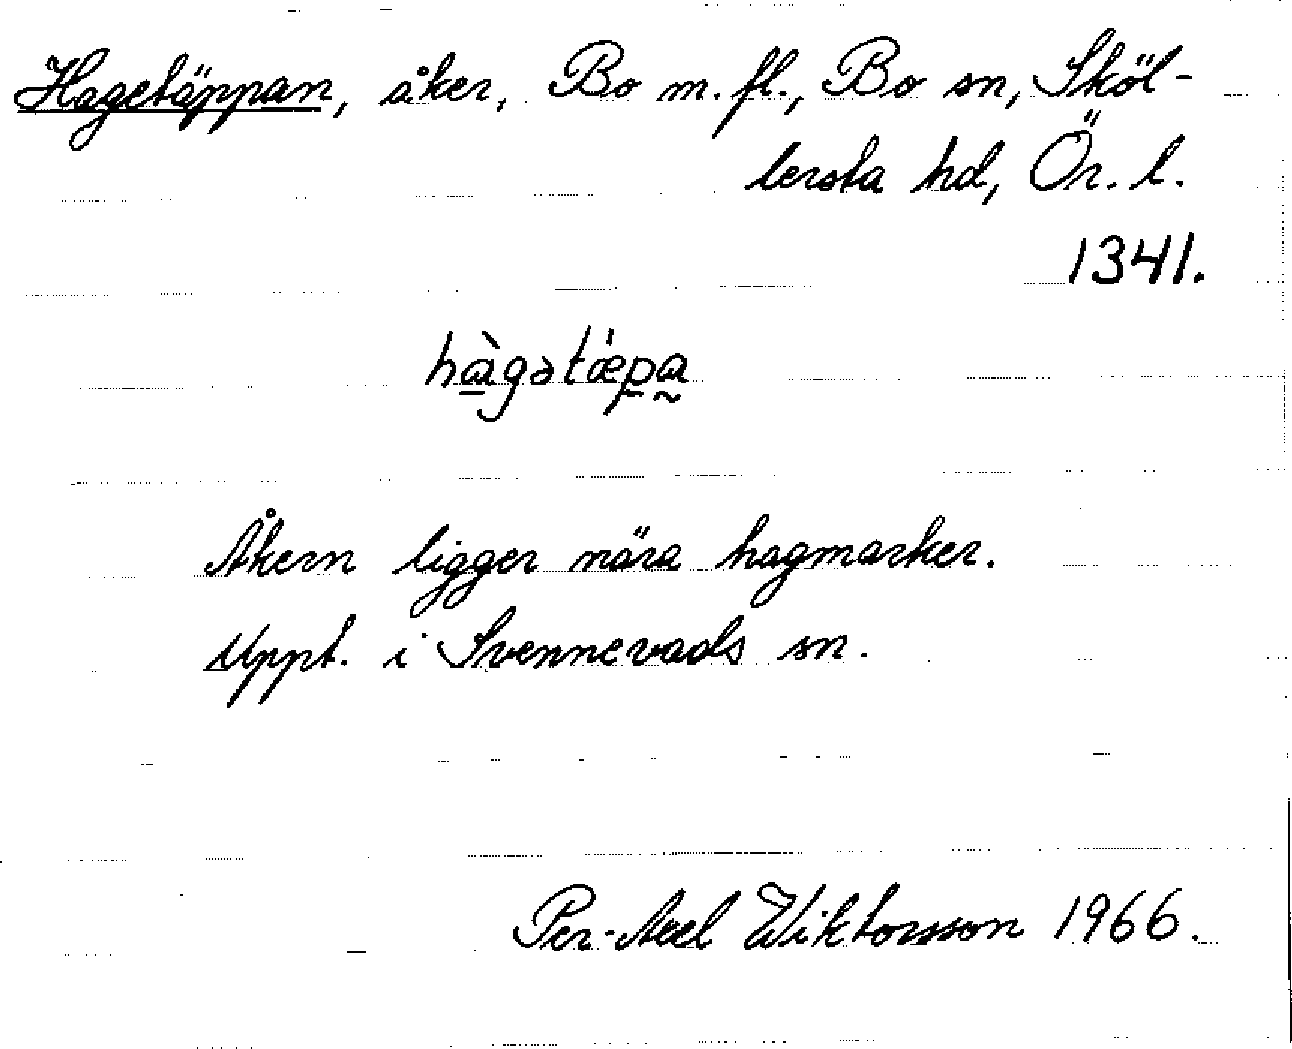 Hagetäppan, åker, Bo m. fl., Bo sn, Sköl-
lersta hd, Ör. l.
1341.
hàgətǽpa
Åkern ligger nära hagmarker.
Uppt. i Svennevads sn.
Per-Axel Wiktorsson 1966.